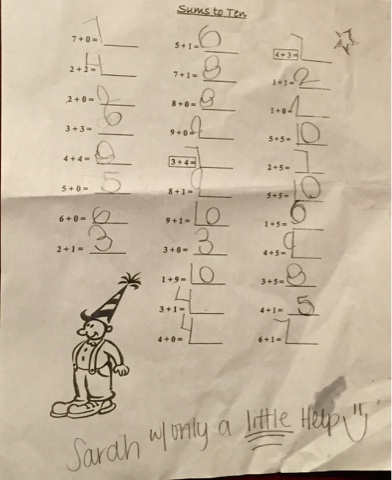 Sums to Ten
7 + 0 = 7
2 + 2 = 4
2 + 0 = 2
3 + 3 = 6
4 + 4 = 8
5 + 0 = 5
6 + 0 = 6
2 + 1 = 3
5 + 1 = 6
7 + 1 = 8
8 + 0 = 8
9 + 0 = 9
3 + 4 = 7
8 + 1 = 9
9 + 1 = 10
3 + 0 = 3
1 + 9 = 10
3 + 1 = 4
4 + 0 = 4
4 + 3 = 7
1 + 1 = 2
1 + 0 = 1
5 + 5 = 10
2 + 5 = 7
5 + 5 = 10
1 + 5 = 6
4 + 5 = 9
3 + 5 = 8
4 + 1 = 5
6 + 1 = 7
Sarah w/only a little Help